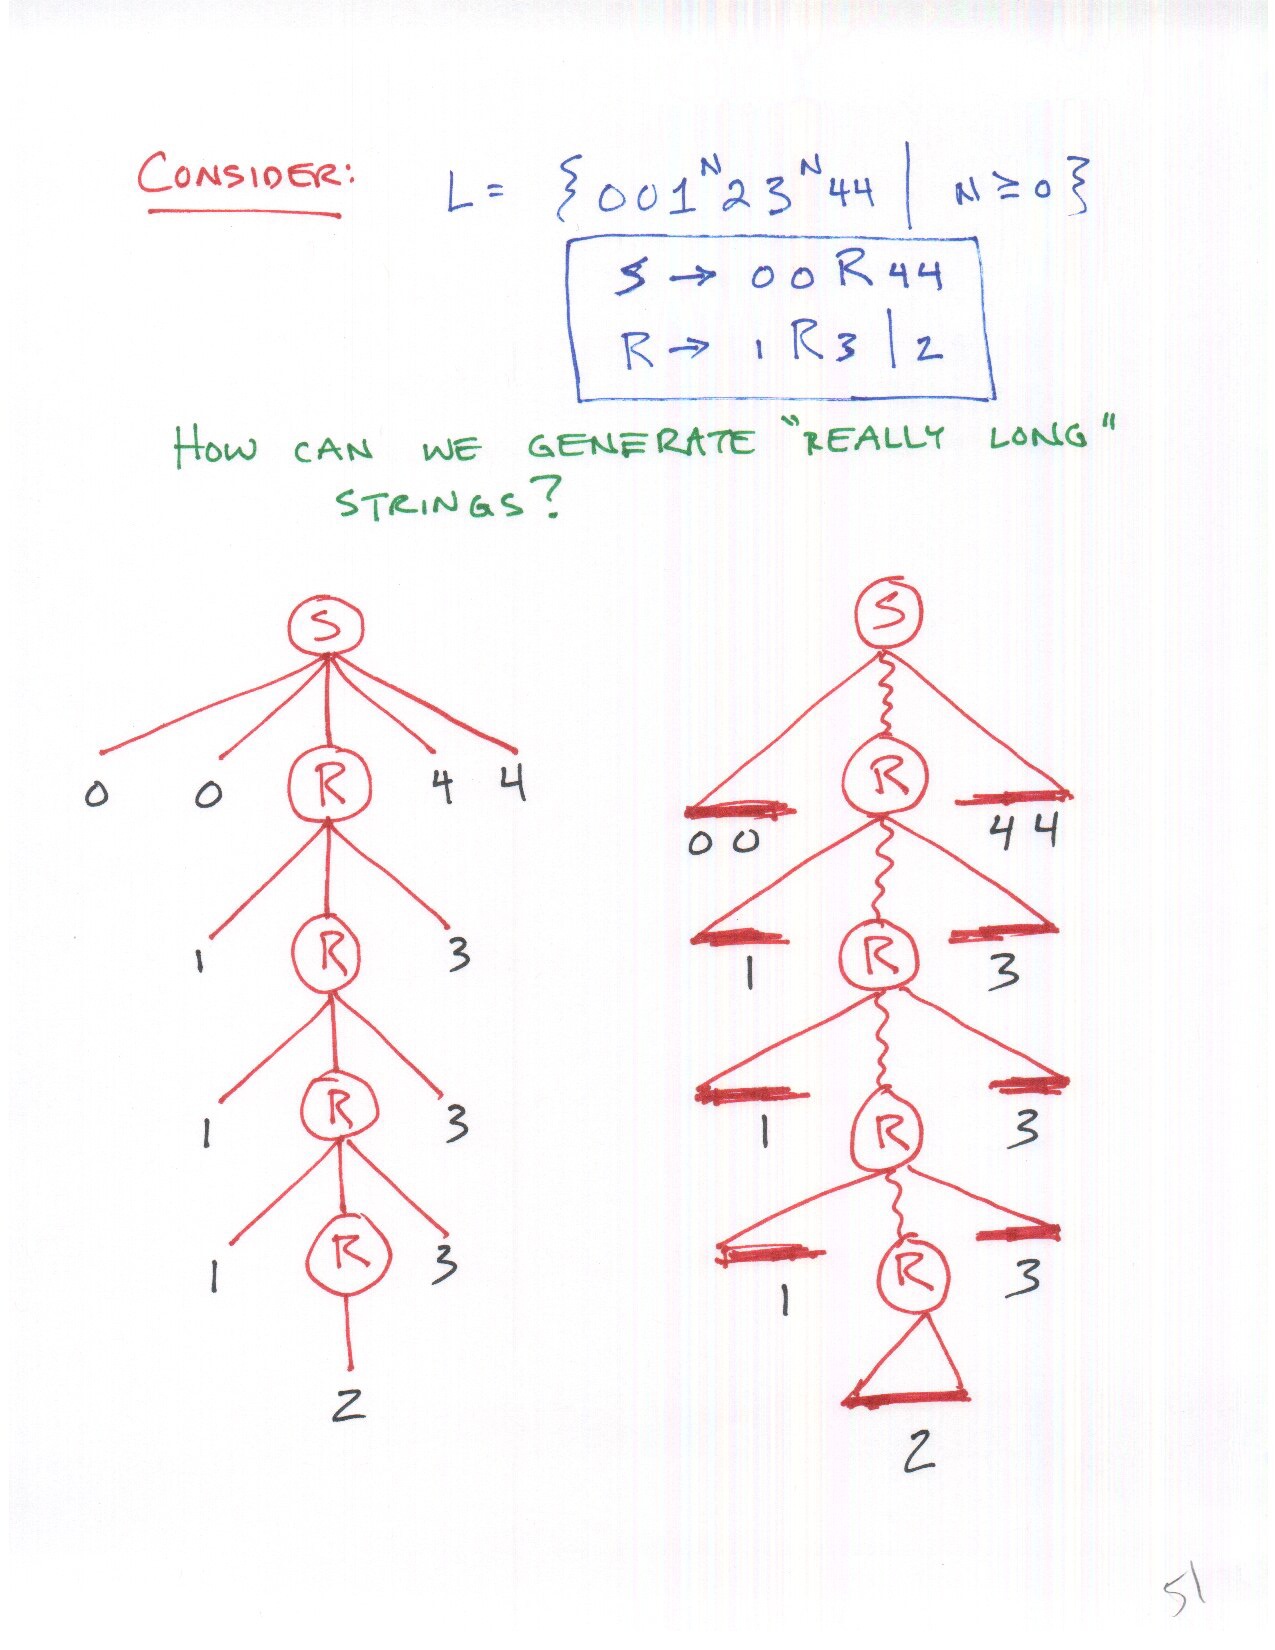 CONSIDER: L = { 001ᴺ23ᴺ44 | N ≥ 0 }
S → 00R44
R → 1R3 | 2
HOW CAN WE GENERATE "REALLY LONG"
STRINGS?
S S
0 0 R 4 4 R
00 44
1 R 3 1 R 3
1 R 3 1 R 3
1 R 3 1 R 3
2 2
51